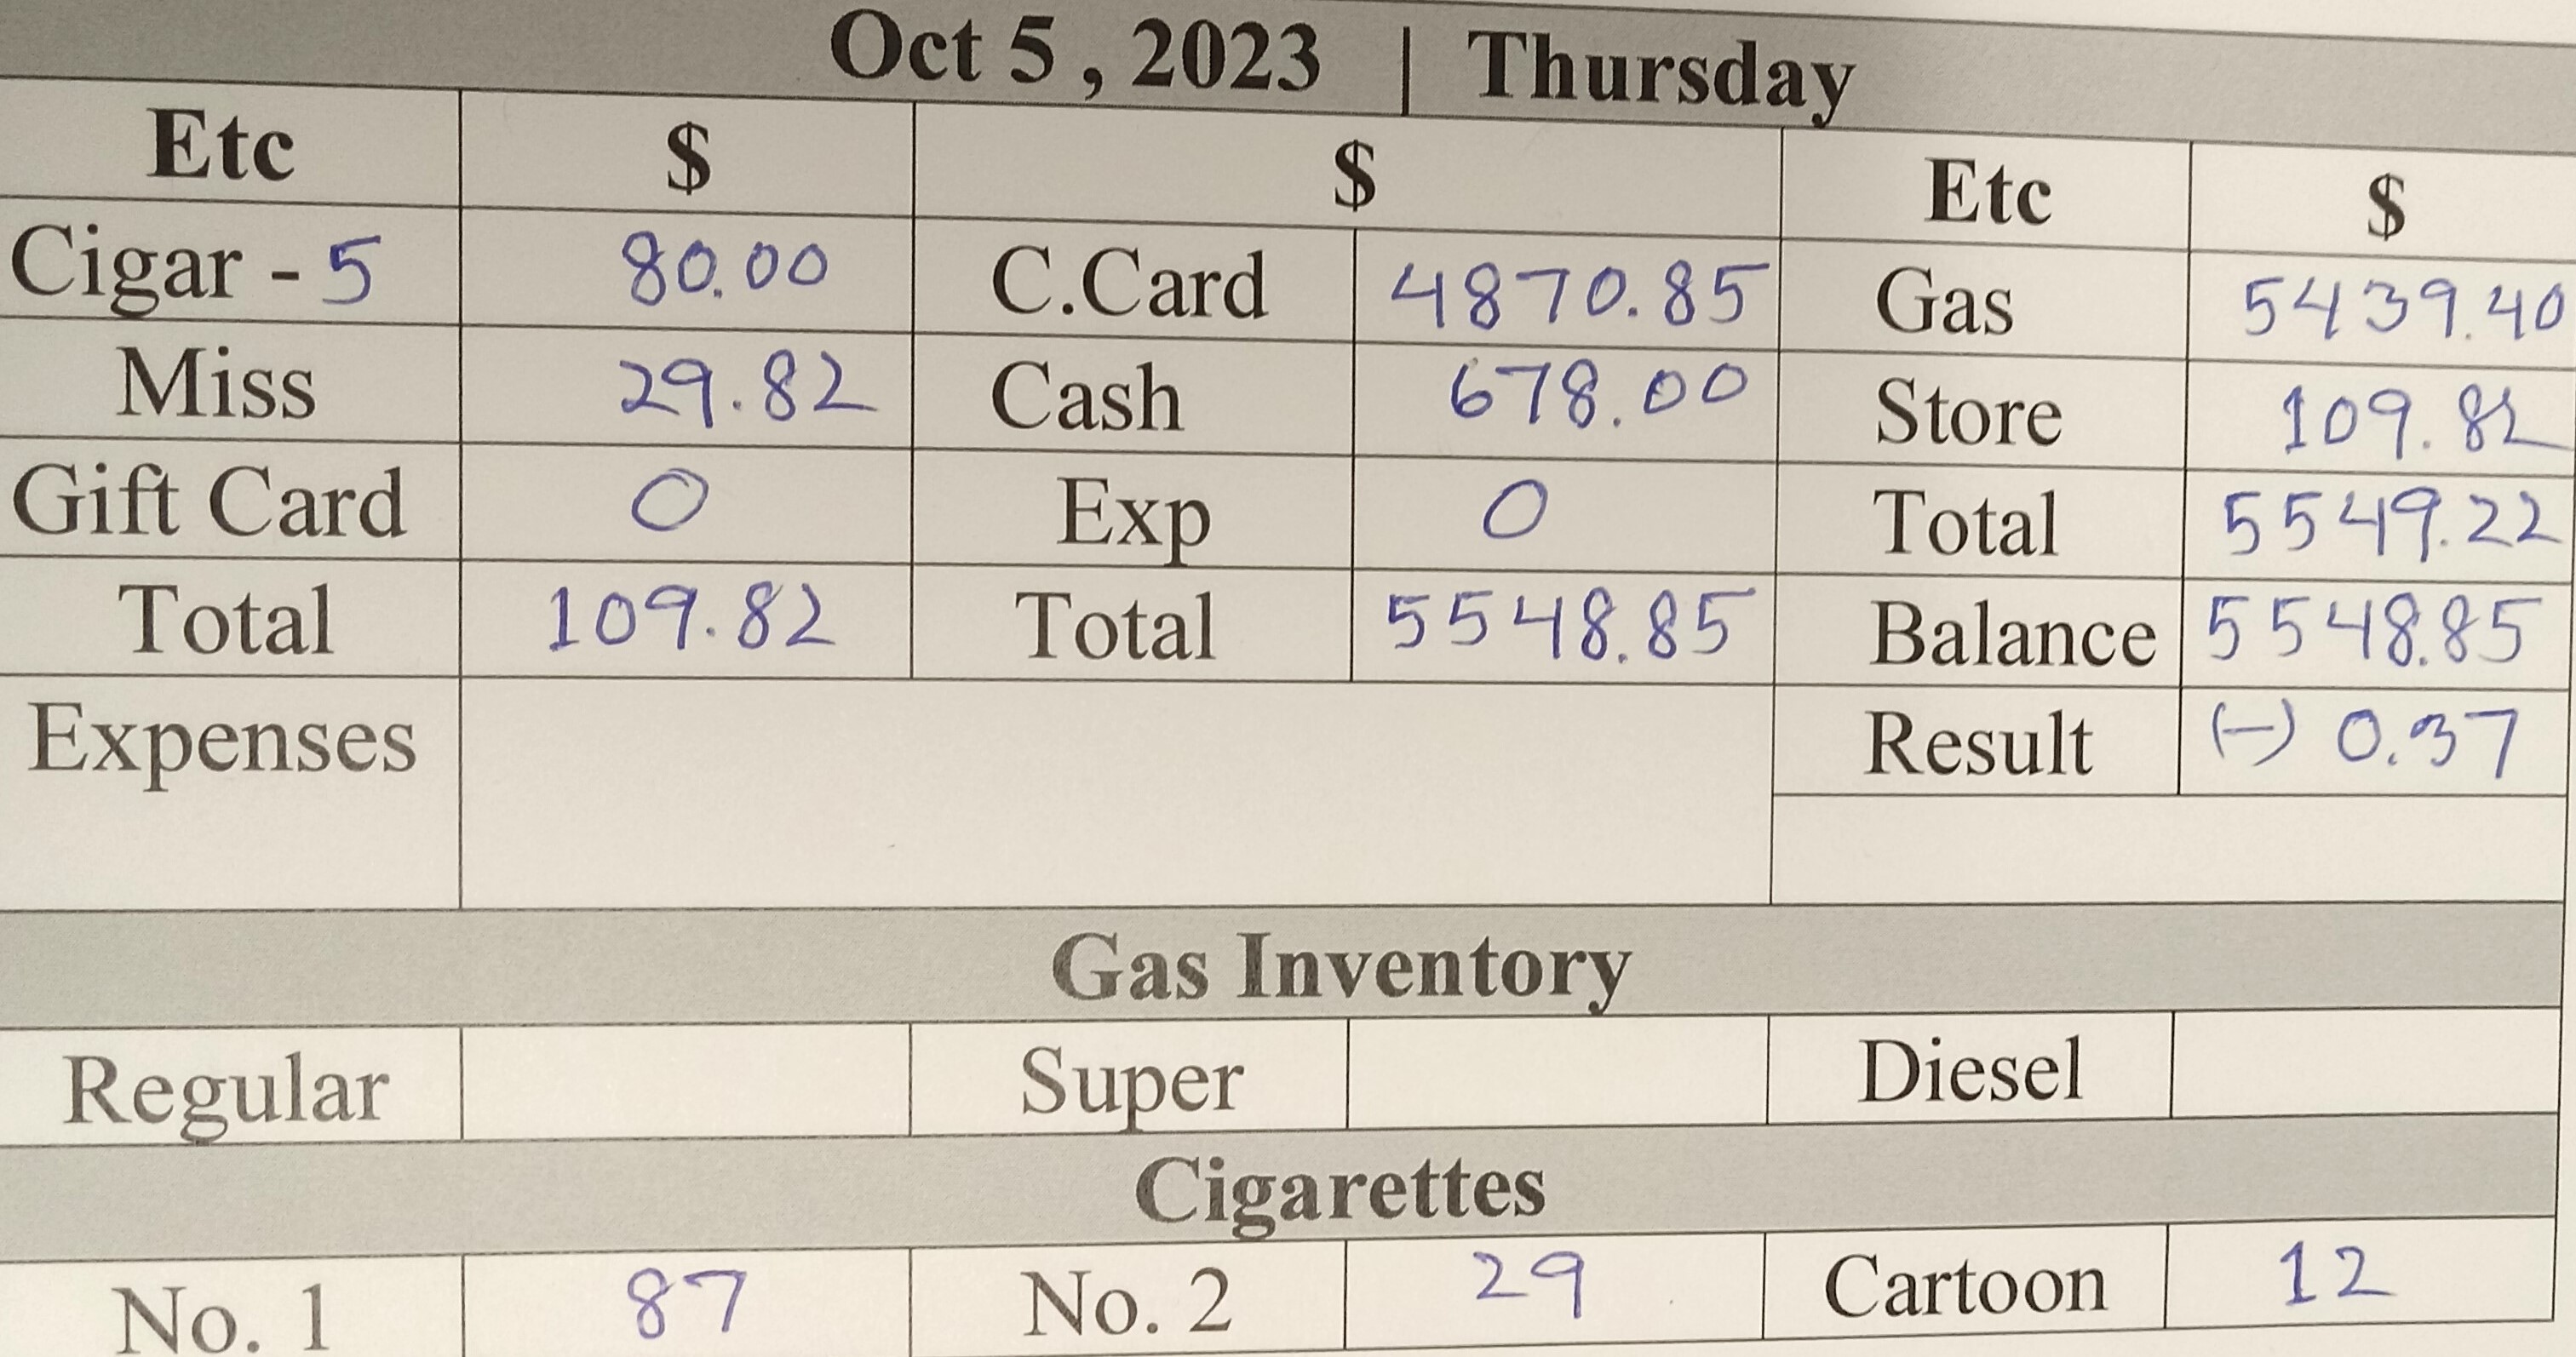 Oct 5 , 2023 | Thursday
Etc $ $ Etc $
Cigar - 5 80.00 C.Card 4870.85 Gas 5439.40
Miss 29.82 Cash 678.00 Store 109.82
Gift Card 0 Exp 0 Total 5549.22
Total 109.82 Total 5548.85 Balance 5548.85
Expenses Result (-) 0.37
Gas Inventory
Regular Super Diesel
Cigarettes
No. 1 87 No. 2 29 Cartoon 12